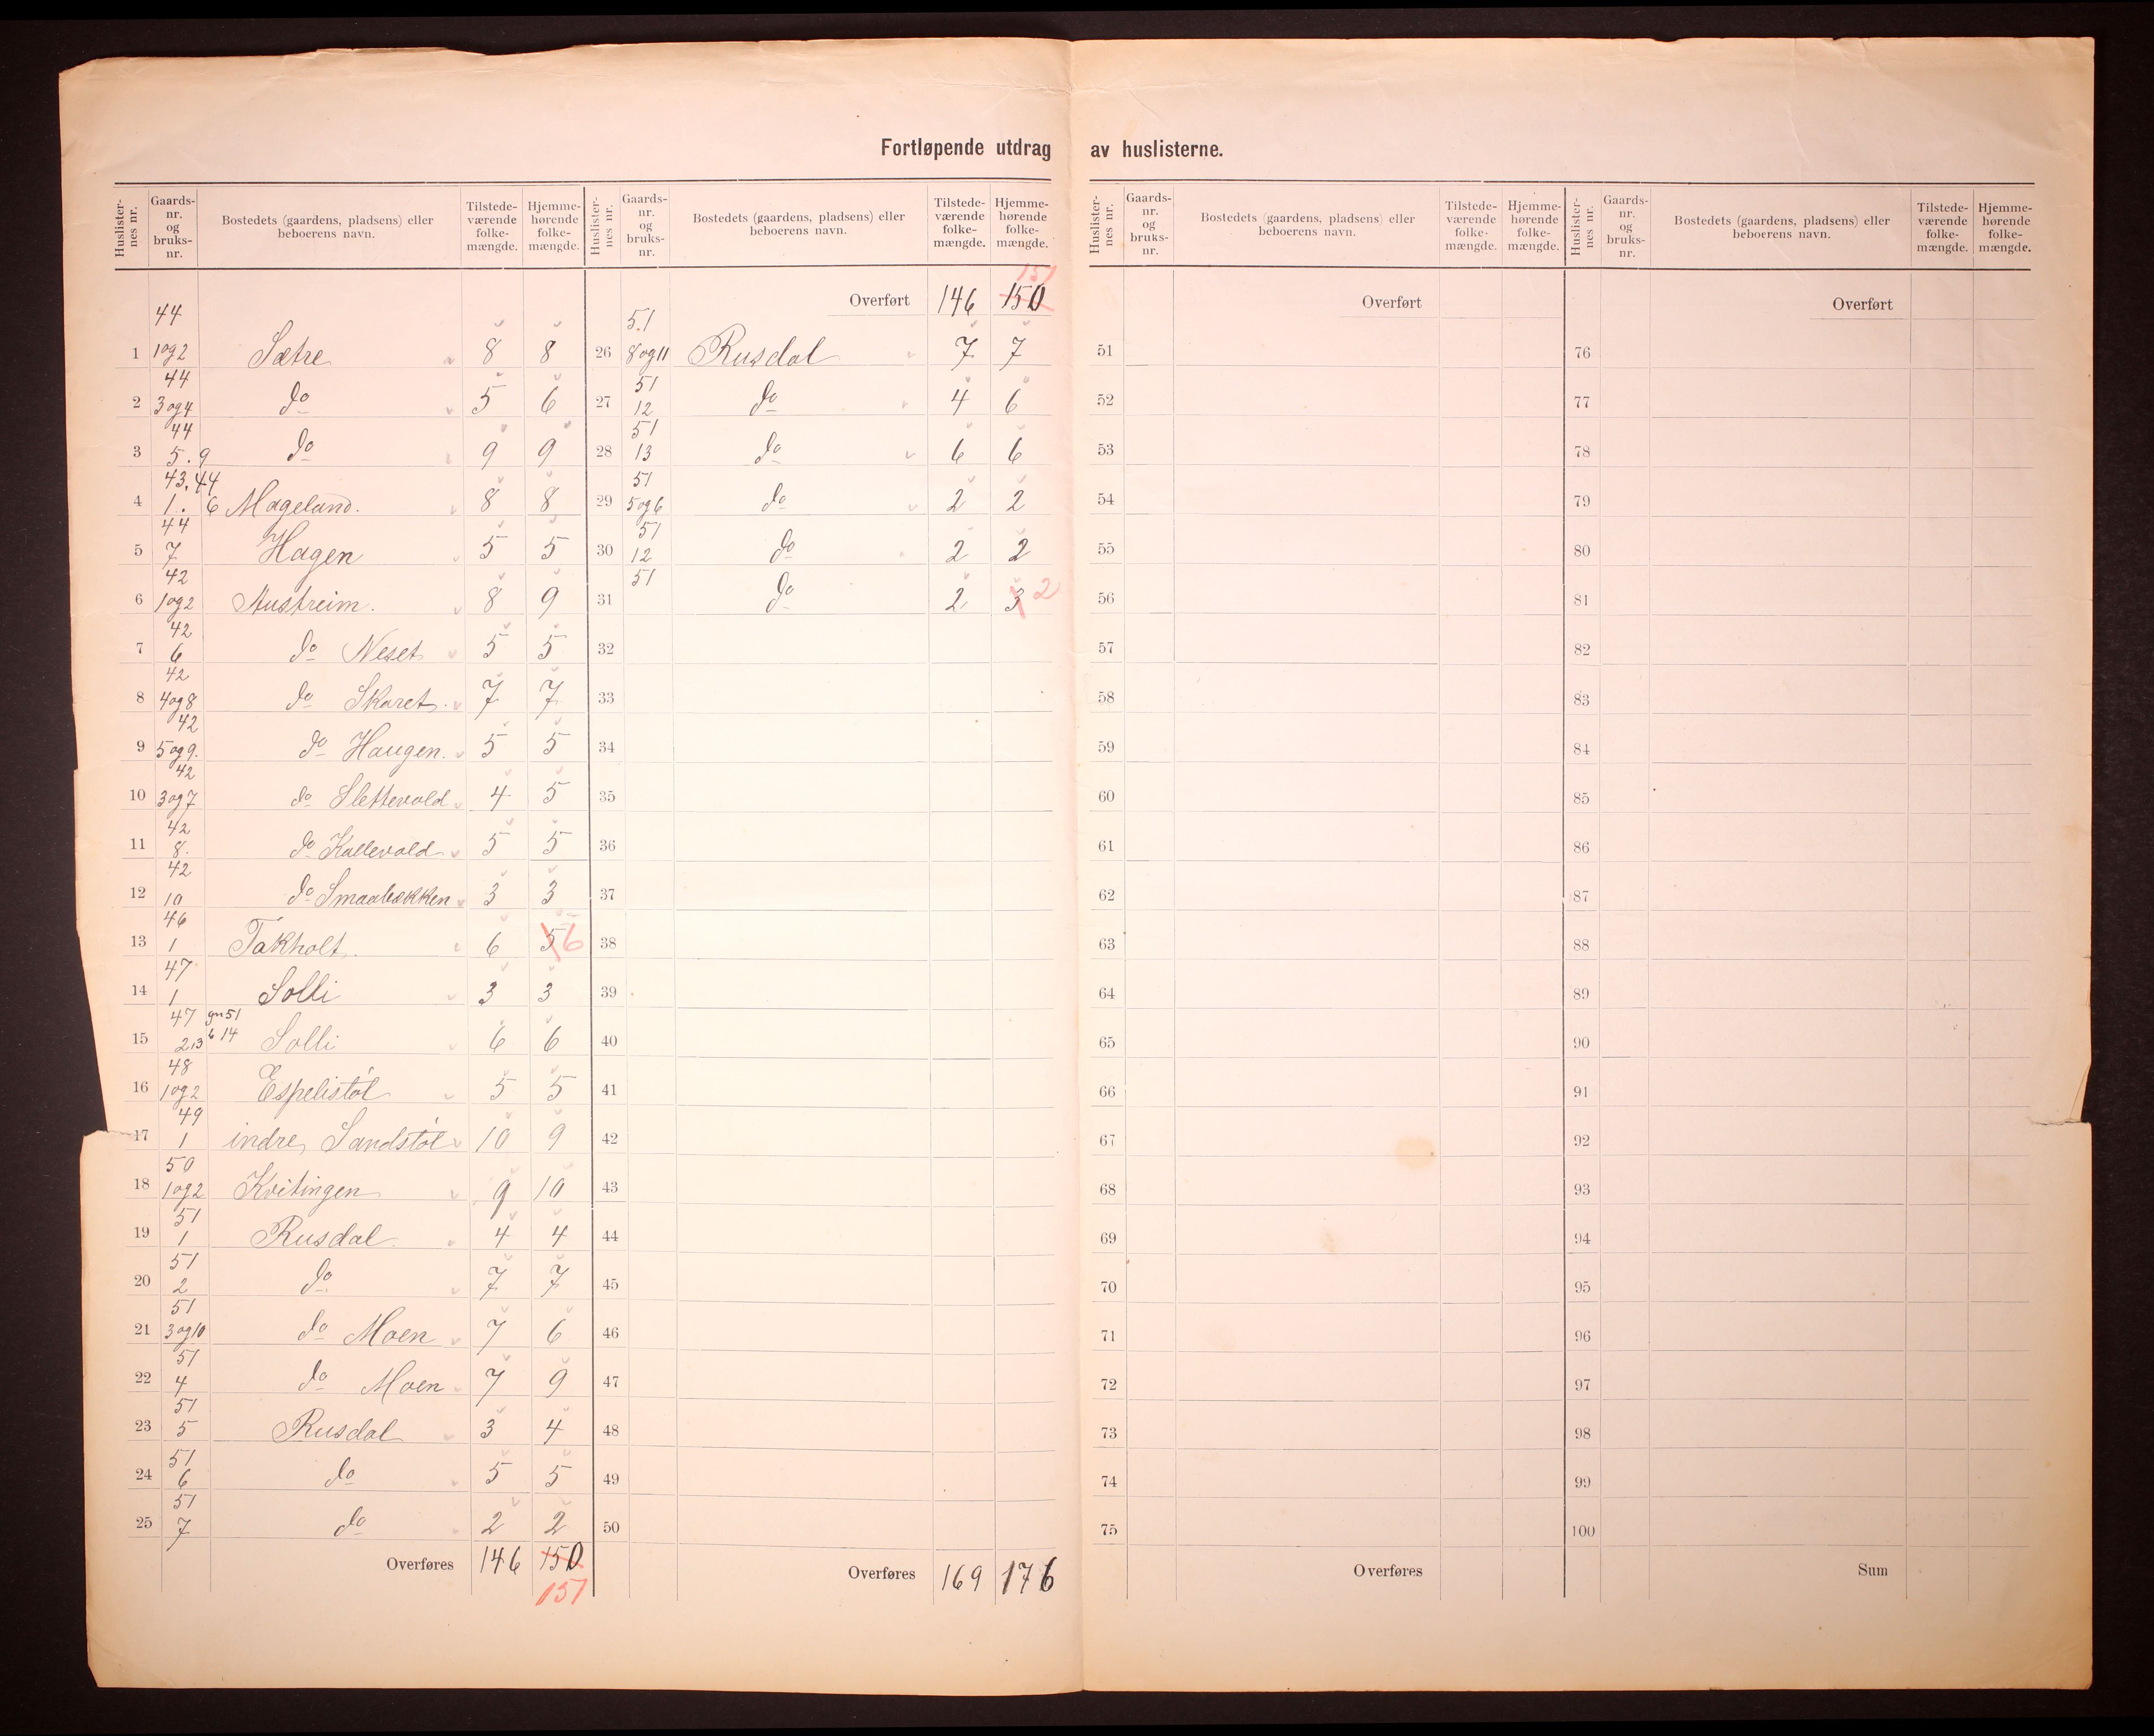 Fortløpende utdrag av huslisterne.
Huslister-nes nr. | Gaards-nr. og bruks-nr. | Bostedets (gaardens, pladsens) eller beboerens navn. | Tilstede-værende folke-mængde. | Hjemme-hørende folke-mængde.
1 | 44 1og2 | Sætre | 8 | 8
2 | 44 3og4 | do | 5 | 6
3 | 44 5.9 | do | 9 | 9
4 | 43.44 1.6 | Mageland. | 8 | 8
5 | 44 7 | Hagen | 5 | 5
6 | 42 1og2 | Austreim. | 8 | 9
7 | 42 6 | do Neset | 5 | 5
8 | 42 4og8 | do Skaret. | 7 | 7
9 | 42 5og9. | do Haugen. | 5 | 5
10 | 42 3og7 | do Slettevold | 4 | 5
11 | 42 8. | do Kallevold | 5 | 5
12 | 42 10 | do Smaabækken | 3 | 3
13 | 46 1 | Takholt. | 6 | 5 6
14 | 47 1 | Solli | 3 | 3
15 | 47 gn 51 2 13 b 14 | Solli | 6 | 6
16 | 48 1og2 | Espelistøl | 5 | 5
17 | 49 1 | indre Sandstøl | 10 | 9
18 | 50 1og2 | Kvitingen | 9 | 10
19 | 51 1 | Rusdal | 4 | 4
20 | 51 2 | do | 7 | 7
21 | 51 3og10 | do Moen | 7 | 6
22 | 51 4 | do Moen | 7 | 9
23 | 51 5 | Rusdal | 3 | 4
24 | 51 6 | do | 5 | 5
25 | 51 7 | do | 2 | 2
Overføres 146 150
151
Huslister-nes nr. | Gaards-nr. og bruks-nr. | Bostedets (gaardens, pladsens) eller beboerens navn. | Tilstede-værende folke-mængde. | Hjemme-hørende folke-mængde.
151
Overført 146 150
26 | 5.1 8og11 | Rusdal | 7 | 7
27 | 51 12 | do | 4 | 6
28 | 51 13 | do | 6 | 6
29 | 51 5og6 | do | 2 | 2
30 | 51 12 | do | 2 | 2
31 | 51 | do | 2 | 3 2
32
33
34
35
36
37
38
39
40
41
42
43
44
45
46
47
48
49
50
Overføres 169 176
Huslister-nes nr. | Gaards-nr. og bruks-nr. | Bostedets (gaardens, pladsens) eller beboerens navn. | Tilstede-værende folke-mængde. | Hjemme-hørende folke-mængde.
Overført
51
52
53
54
55
56
57
58
59
60
61
62
63
64
65
66
67
68
69
70
71
72
73
74
75
Overføres
Huslister-nes nr. | Gaards-nr. og bruks-nr. | Bostedets (gaardens, pladsens) eller beboerens navn. | Tilstede-værende folke-mængde. | Hjemme-hørende folke-mængde.
Overført
76
77
78
79
80
81
82
83
84
85
86
87
88
89
90
91
92
93
94
95
96
97
98
99
100
Sum